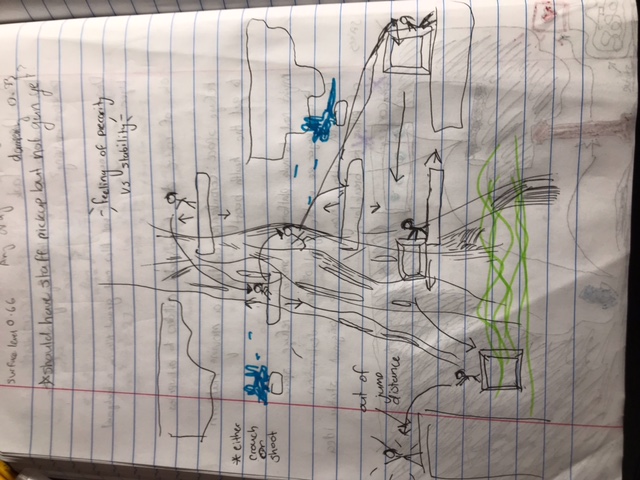 surface level 0.66
damping 0.3
*should have staff pickup but not gun yet?
feeling of precarity
vs stability
* either
crouch
or
shoot
out of
jump
distance